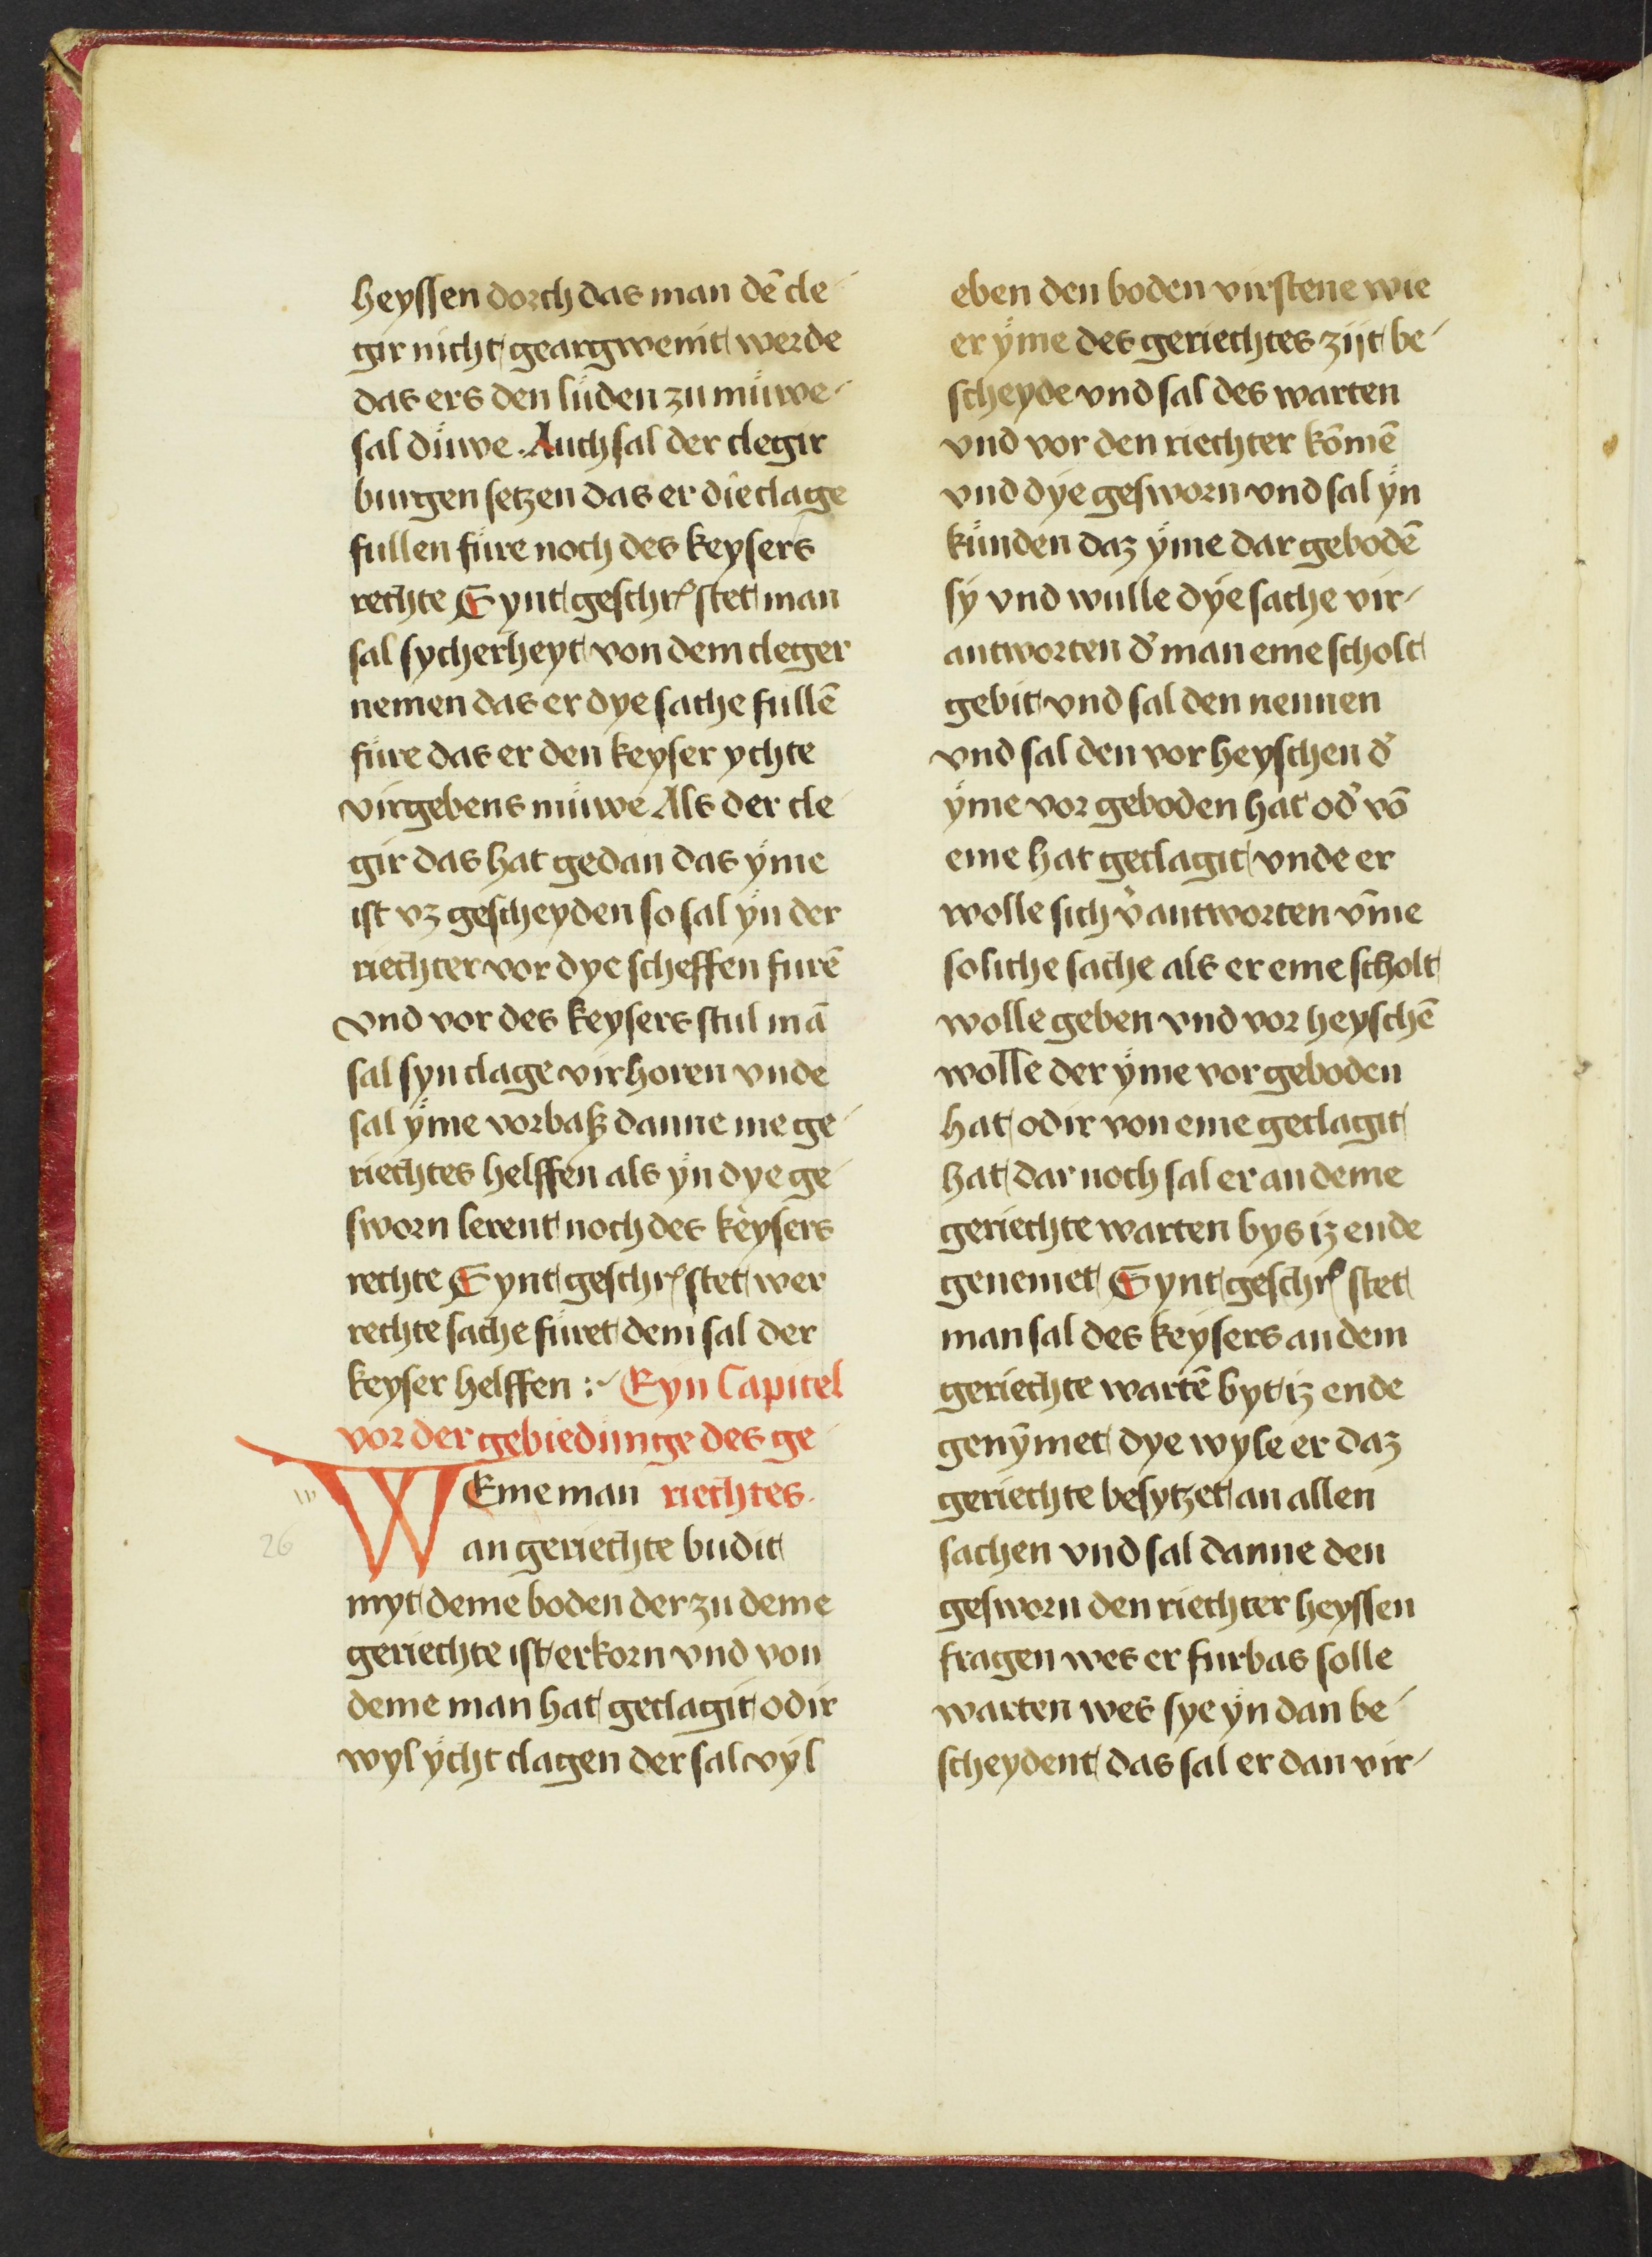 heyssen dorch das man dē cle-
gir nicht geargwenit werde
das ers den lüden zu müwe-
sal düwe. Auch sal der clegir
burgen setzen das er die clage
fullen füre noch des keysers
rechte Synt geschr stet man
sal sycherheyt von dem cleger
nemen das er dye sache fullē
füre das er den keyser ychte
virgebens müwe Als der cle-
gir das hat gedan das ÿme
ist vz gescheyden so sal ÿn der
riechter vor dye scheffen furē
vnd vor des keysers stul mā
sal syn clage virhoren vnde
sal ÿme vorbaß danne me ge-
riechtes helffen als ÿn dye ge-
sworn lerent noch des keysers
rechte Synt geschr stet wer
rechte sache füret dem sal der
keyser helffen :~ Eyn Capitel
vor der gebiedünge des ge
WEme man riechtes.
26
an geriechte budit
myt deme boden der zu deme
geriechte ist erkorn vnd von
deme man hat geclagit odir
wyl ÿcht clagen der sal vÿl
eben den boden virstene wie
er ÿme des geriechtes zijt be-
scheyde vnd sal des warten
vnd vor den riechter kōmē
vnd dye gesworn vnd sal ÿn
künden daz ÿme dar gebodē
sy vnd wulle dye sache vir-
antworten d' man eme scholt
gebit vnd sal den nennen
vnd sal den vor heyschen d'
ÿme vor geboden hat od' vō
eme hat geclagit vnde er
wolle sich v'antworten v̄me
soliche sache als er eme scholt
wolle geben vnd vor heyschē
wolle der ÿme vor geboden
hat odir von eme geclagit
hat dar noch sal er an deme
geriechte warten bys iz ende
genemet Synt geschr stet
man sal des keysers an dem
geriechte wartē byt iz ende
genȳmet dye wyle er daz
geriechte besytzet an allen
sachen vnd sal danne den
gesworn den riechter heyssen
fragen wes er furbas solle
warten wes sye ÿn dan be-
scheydent das sal er dan vir-